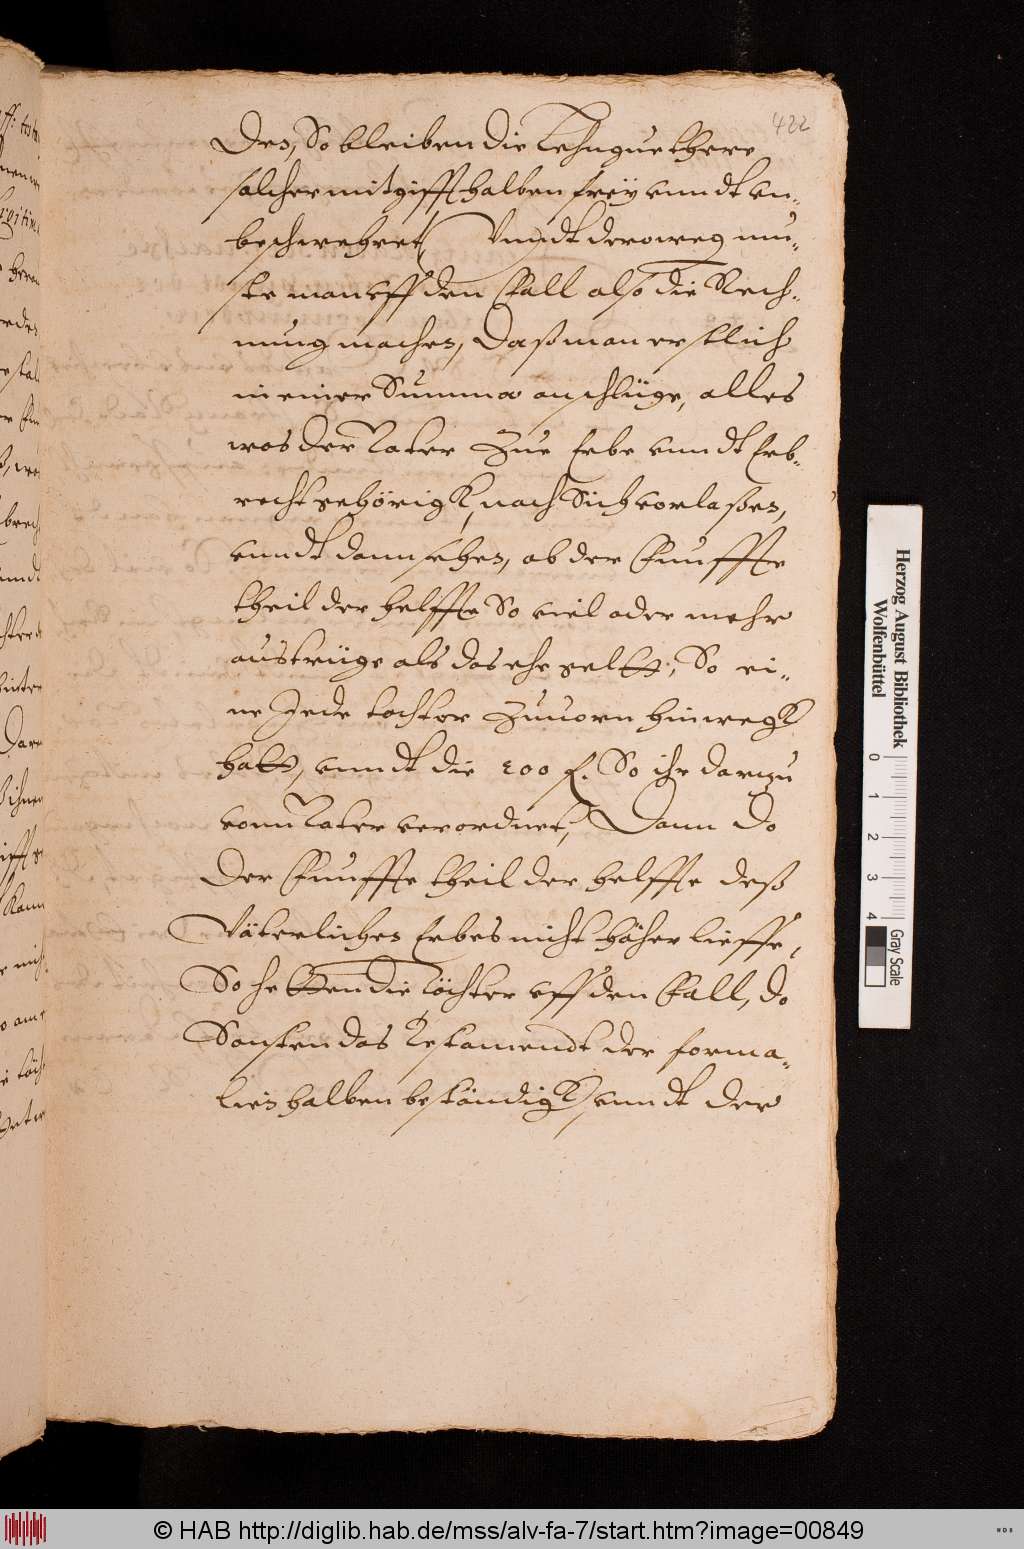 422
den, So bleiben die Lehngue there
solcher mitgifft halben frey vnndt vn¬
beschwehret, Vnndt deroweg mu¬
ste man vff den Fall also die Rech¬
nung machen, Daß man erstlich
in einer Summa anschlüge, alles
was der Vater zue Erbe vnndt Erb¬
recht gehörigk, nach Sich vorlaßen,
vnndt dann sehen, ob der Funffte
theil der helffte So viel oder mehr
austrüge als das ehegeltt, So ei¬
ne Jede tochter zuuorn hinwegk
hatt, vnndt die 200 f. So ihr darzu
vom Vater verordnet, Dann do
der Funffte theil der helffte deß
Väterlichen Erbes nicht höher lieffe,
So hetten die Töchter vff den Fall, do
Sonsten das Testamendt der forma¬
lien halben bestöndigk, vnndt der
Herzog August Bibliothek
Wolfenbüttel
0 1 2 3 4
Gray Scale
© HAB http://diglib.hab.de/mss/alv-fa-7/start.htm?image=00849